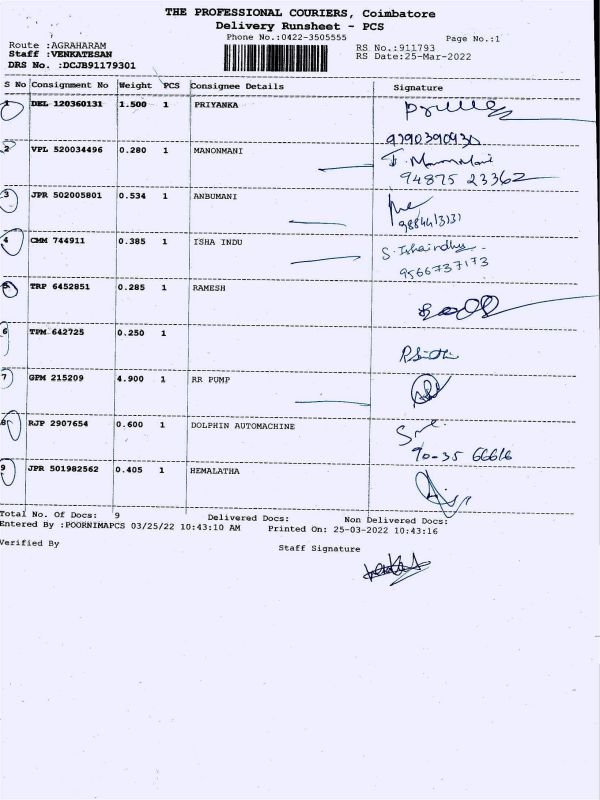 THE PROFESSIONAL COURIERS, Coimbatore
Delivery Runsheet - PCS
Phone No.:0422-3505555
Page No.:1
Route :AGRAHARAM
Staff :VENKATESAN
DRS No. :DCJB91179301
RS No.:911793
RS Date:25-Mar-2022
S No Consignment No Weight PCS Consignee Details Signature
1 DEL 120360131 1.500 1 PRIYANKA
2 VPL 520034496 0.280 1 MANONMANI
94875 23362
3 JPR 502005801 0.534 1 ANBUMANI
9884413131
4 CMM 744911 0.385 1 ISHA INDU S. Ishaindhu
9566737173
5 TRP 6452851 0.285 1 RAMESH
6 TPM 642725 0.250 1
7 GPM 215209 4.900 1 RR PUMP
8 RJP 2907654 0.600 1 DOLPHIN AUTOMACHINE
90-35 66616
9 JPR 501982562 0.405 1 HEMALATHA
Total No. Of Docs: 9 Delivered Docs: Non Delivered Docs:
Entered By :POORNIMAPCS 03/25/22 10:43:10 AM Printed On: 25-03-2022 10:43:16
Verified By
Staff Signature